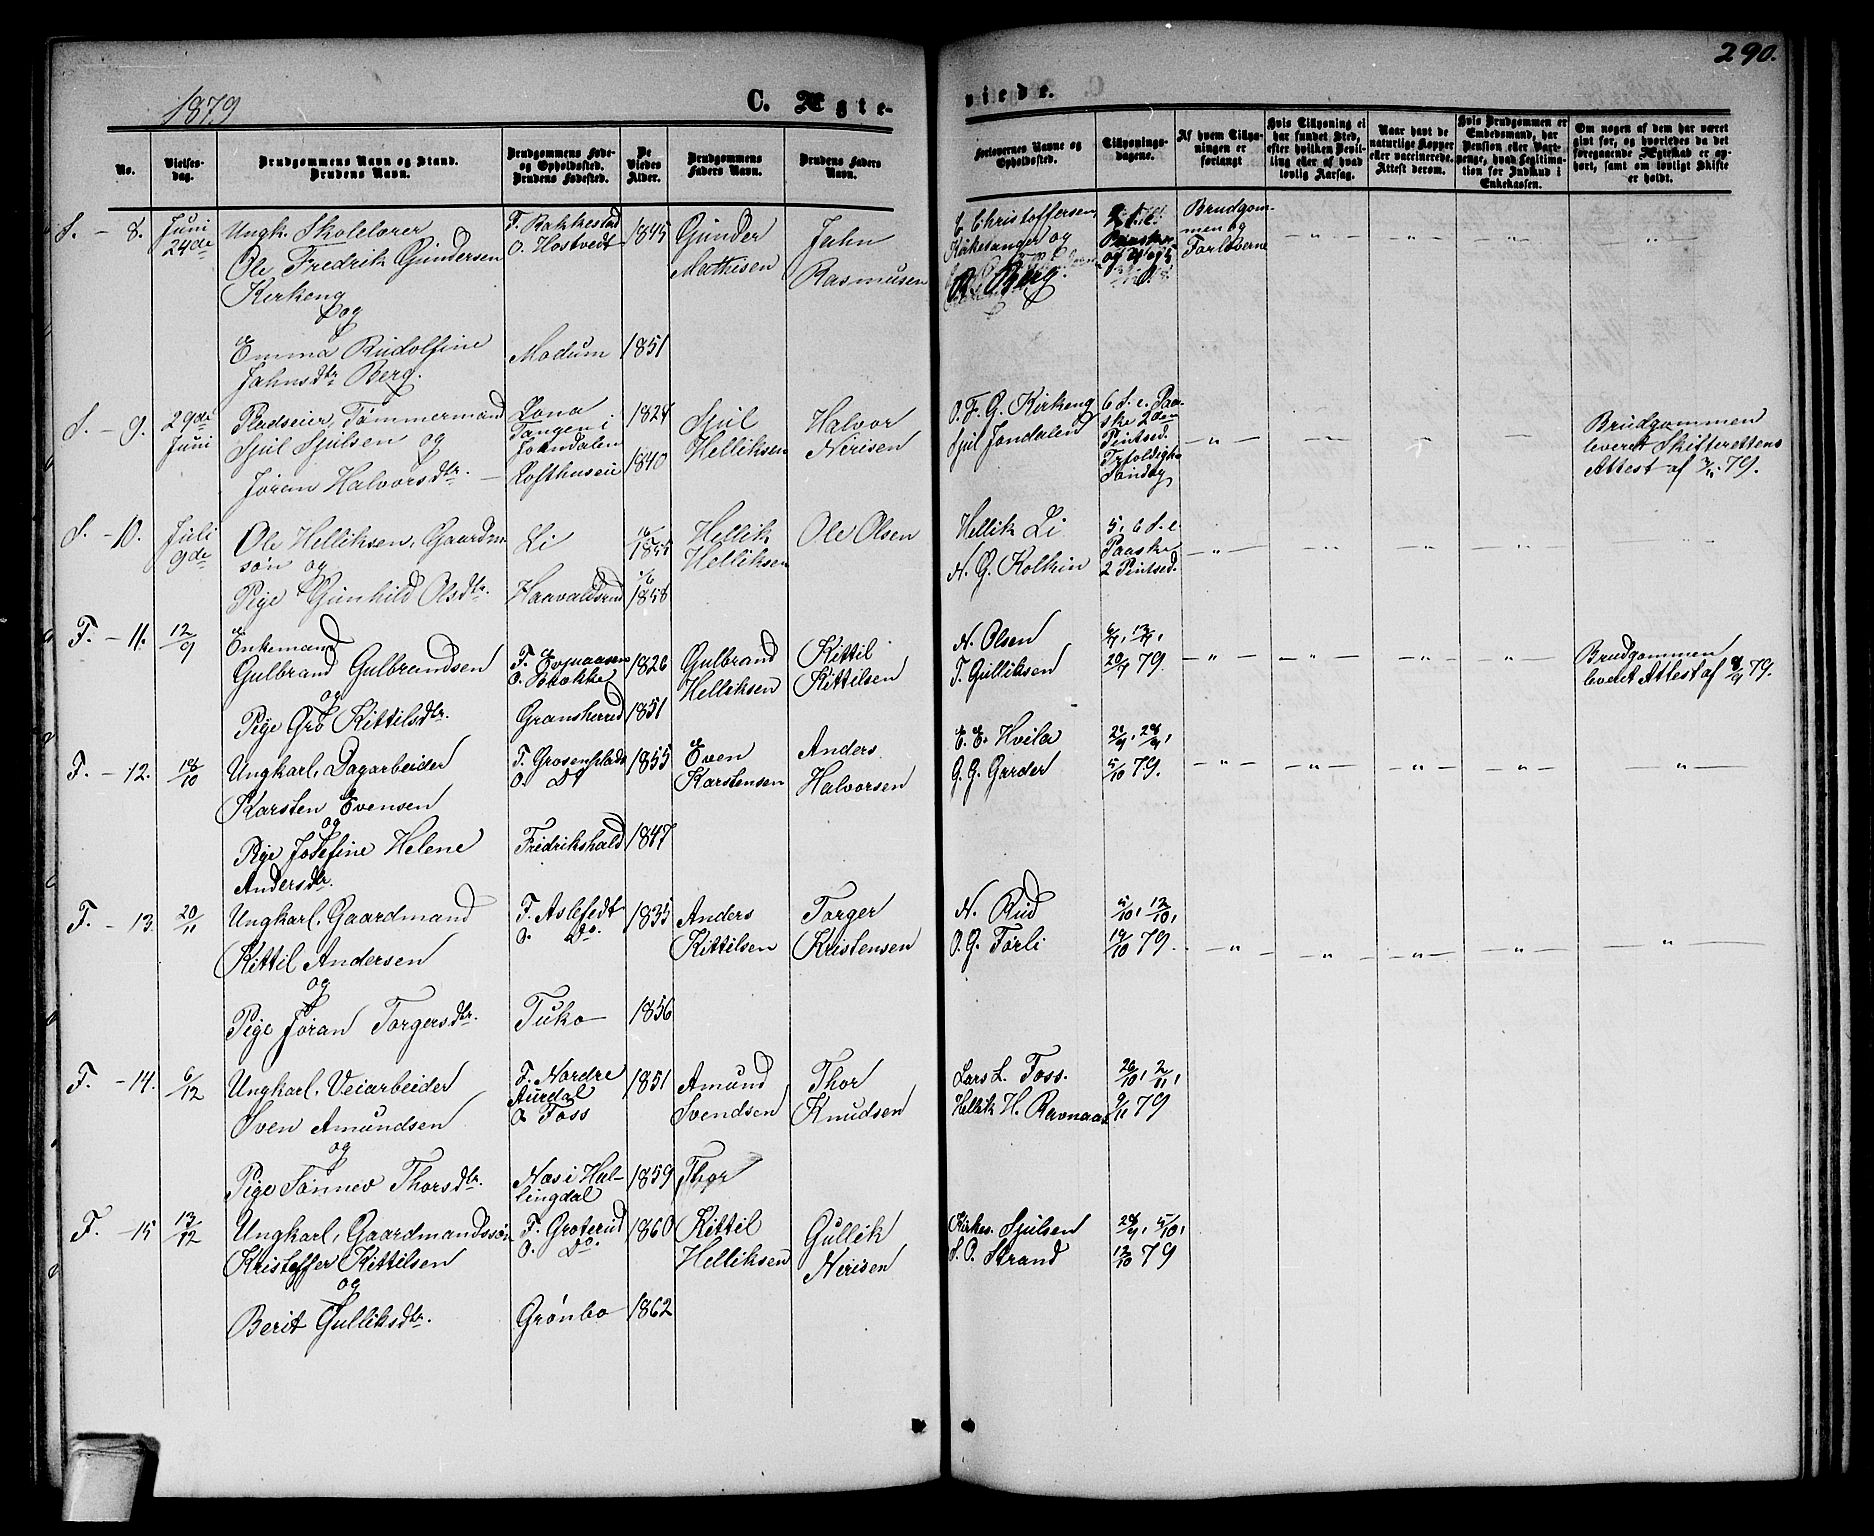 290.
1879
C. Ægte-
viede.
No.
Vielses-
dag.
Brudgommens Navn og Stand.
Brudens Navn.
Brudgommens Føde-
og Opholdssted.
Brudens Fødested.
De
Viedes
Alder.
Brudgommens
Faders Navn.
Brudens Faders
Navn.
Forlovernes Navne og
Opholdssted.
Tillysnings-
dagene.
Af hvem Tillys-
ningen er
forlangt
Hvis Tillysning ei
har fundet Sted,
efter hvilken Bevil-
ling eller af hvad
lovlig Aarsag.
Naar havt de
naturlige Kopper
eller vaccinerede.
Attest derom.
Hvis Brudgommen er
Embedsmand, har
Pension eller Vart-
penge, hvad Legitima-
tion for Indskud i
Enkekassen.
Om nogen af dem har været
gift før, og hvorledes da det
foregaaende Ægteskab er op-
hørt, samt om lovligt Skifte
er holdt.
S. - 8.
Juni
24de
Ungk. Skolelærer
Ole Fredrik Gundersen
Kirkeng
og
Emma Rudolfine
Jahnsdtr Berg.
F. Bakkestad
O. Hostvedt
Modum
1845
1851
Gunder
Mathisen
Jahn
Rasmusen
C Christoffersen,
Kirkesanger og
Berg.
Brudgom-
men og
Forloverne
S. - 9.
29de
Juni
Pladseier, Tømmermand
Sjul Sjulsen og
Jøran Halvorsdtr. -
Lona
Tangen i
Jondalen
Lofthuseie
1824
1840
Sjul
Helliksen
Halvor
Nirisen
O. F. G. Kirkeng
Sjul Jondalen
6 S. e. Paa-
ske 2den
Pintsed.
Trfoldigh.
Søndag
Brudgommen
leveret Skifterettens
Attest af 79.
S. - 10.
Juli
9de
Ole Helliksen, Gaardm-
søn og
Pige Gunhild Olsdtr.
Li
Haavaldsrud
1855
1858
Hellik
Helliksen
Ole Olsen
Hellik Li
N. G. Kolkin
5, 6 S. e.
Paaske
2 Pintsed.
F. - 11.
12/9
Enkemand
Gulbrand Gulbrandsen
og
Pige Gro Kittilsdtr.
F. Evjuaasen
O. Stokke
Gransherred
1826
1851
Gulbrand
Helliksen
Kittil
Kittilsen
N. Olsen
T. Gulliksen
20/4 79.
Brudgommen
leveret Attest af 79.
F. - 12.
18/10
Ungkarl, Dagarbeider
Karsten Evensen
og
Pige Josefine Helene
Andersdtr.
F. Grosenplads
O. Do
Fredrikshald
1855
1847
Even
Karstensen
Anders
Halvorsen
E. E. Hvila
G. G. Garder
21/9, 28/9,
5/10 79.
F. - 13.
20/11
Ungkarl, Gaardmand
Kittil Andersen
og
Pige Jøran Torgersdtr.
F. Aslefedt
O. Do.
Tuko
1835
1856
Anders
Kittilsen
Torger
Kristensen
N. Rud
O. G. Førli
5/10, 12/10,
19/10 79.
F. - 14.
6/12
Ungkarl, Veiarbeider
Sven Amundsen
og
Pige Sønnev Thorsdtr.
F. Nordre
Aurdal
O Foss
Næs i Hal-
lingdal
1851
1859
Amund
Svendsen
Thor
Thor
Knudsen
Lars L. Foss.
Hellik H. Ravnaas
26/10, 2/11,
9/11 79
F. - 15
13/12
Ungkarl, Gaardmandssøn
Kristoffer Kittilsen
og
Berit Gulliksdtr.
F. Groterud
O. Do.
Grønbo
1860
1862
Kittil
Helliksen
Gullik
Nirisen
Kirkes. Sjulsen
S. P. Strand
28/9, 5/10,
12/10 79